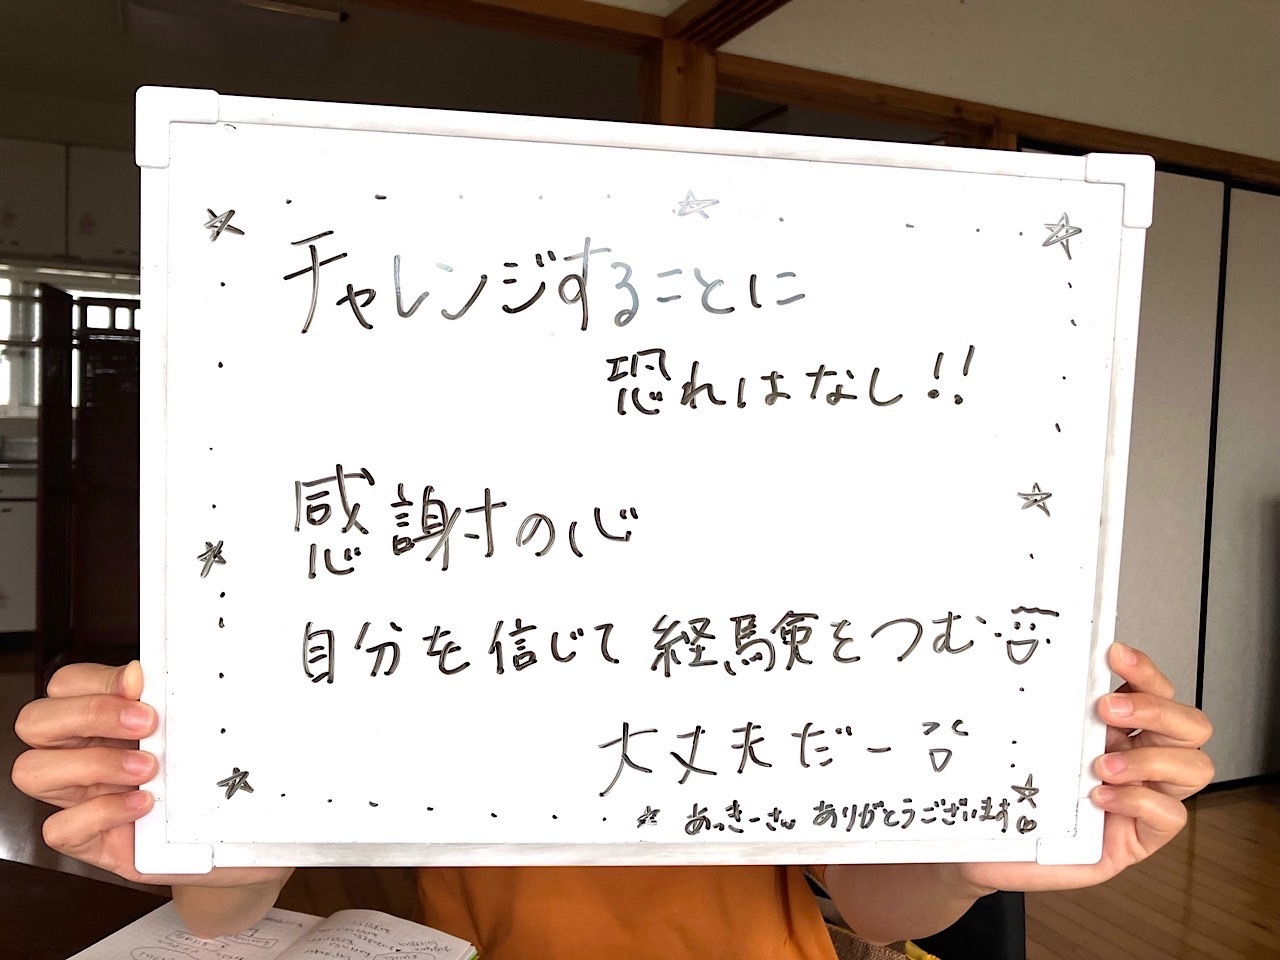 チャレンジすることに
恐れはなし!!
感謝の心
自分を信じて 経験をつむ
大丈夫だー
あっきーさん ありがとうございます